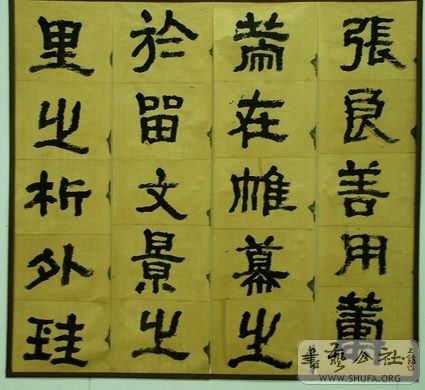 張良善用籌
策在帷幕之
於留文景之
里之析外珪
書藝公社
WWW.SHUFA.ORG